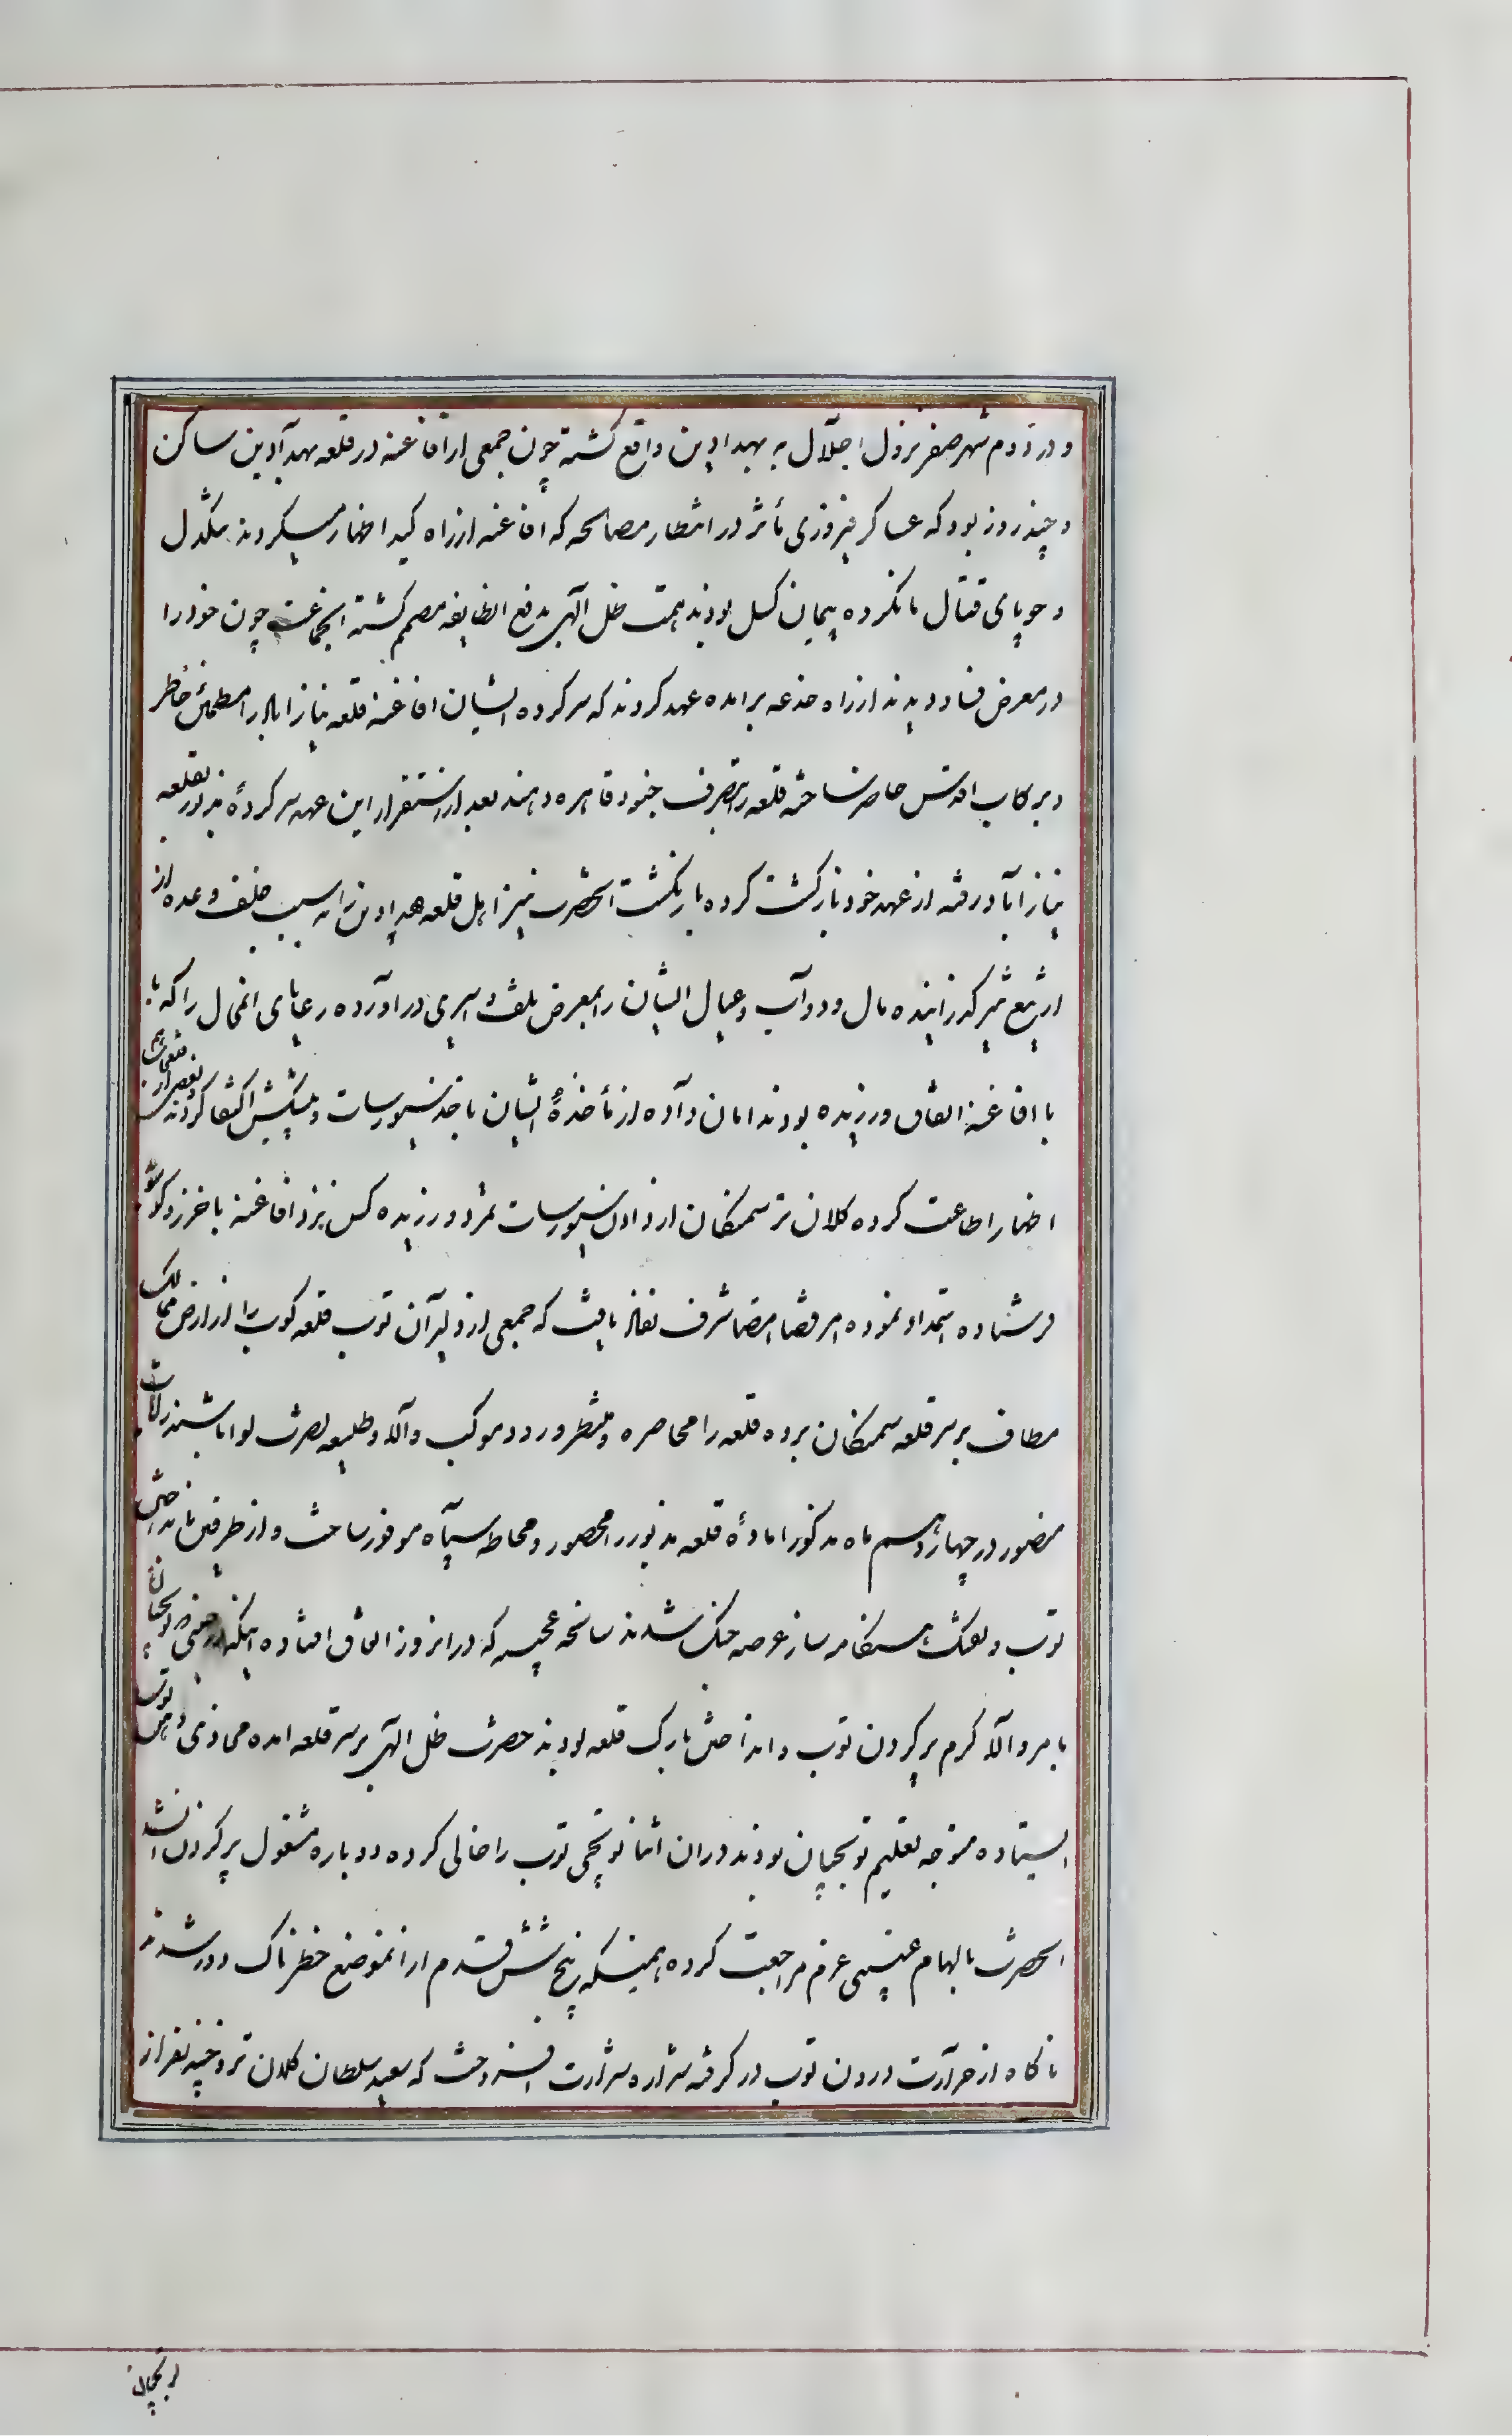 و در دوم شهر صفر نزول اجلال به بهدادین واقع کشته چون جمعی از افاغنه در قلعه بهدآدین ساکن
و چند روز بود که عساکر فیروزی مأثر در انتظار مصالحه که افاغنه از راه کید اظهار میکردند یکدل
و جویای قتال یا نکرده پیمان کسل بودند همت ظل الهی بدفع انطایفه مصمم کشته انجماعت چون خود را
در معرض فنا دیدند از راه خدعه برآمده عهد کردند که سرکرده ایشان افاغنه قلعه نیازاباد را مطمئن خاطر
در رکاب اقدس حاضر ساخته قلعه را بتصرف جنود قاهره دهند بعد از استقرار این عهد سرکردهٔ مذبور بقلعه
نیازآباد رفته از عهد خود بازکشت کرده بازنکشت انحضرت نیز اهل قلعه بهدادین را به سبب خلف وعده از
از تیغ تیز کذرانیده مال و دوآب و عیال ایشان را بمعرض تلف و اسیری در اورده رعایای انمحال را که
با افاغنه اتفاق ورزیده بودند امان داده از مأخذهٔ ایشان باخذ سیورسات و پیشکش اکتفا کردند
اظهار اطاعت کرده کلان تر سمنکان از دادن سیورسات تمرد ورزیده کس نزد افاغنه باخرز و کوسویه
فرستاده استمداد نموده امر قضا امضا شرف نفاذ یافت که جمعی از دلیرآن توپ قلعه کوب را از ارض ممالک
مطاف بر سر قلعه سمنکان برده قلعه را محاصره و منتظر ورود موکب والا و طلیعه نصرت لوا باشند رایات
منصور در چهاردهم ماه مذکور امادهٔ قلعه مذبور را محصور و محاط سپآه موفور ساخت و از طرفین بانداختن
توپ و تفنک هنکامه ساز عرصه جنک شدند سانحه عجیبه که در انروز اتفاق افتاده اینکه در حینی که توپچیان
بامر والا کرم پر کردن توپ و انداختن بارک قلعه بودند حضرت ظل الهی بر سر قلعه امده محاذی دهن توپ
ایستاده متوجه تعلیم توپچیان بودند در ان اثنا توپچی توپ را خالی کرده دوباره مشغول پر کردن شد
انحضرت بالهام غیبی عزم مراجعت کرده همینکه پنج شش قدم از انموضع خطرناک دور شدند
ناکاه از حرآرت درون توپ در کرفته شراره شرارت افروخت که سعید سلطان کلان تر و چند نفر از
توپچیان